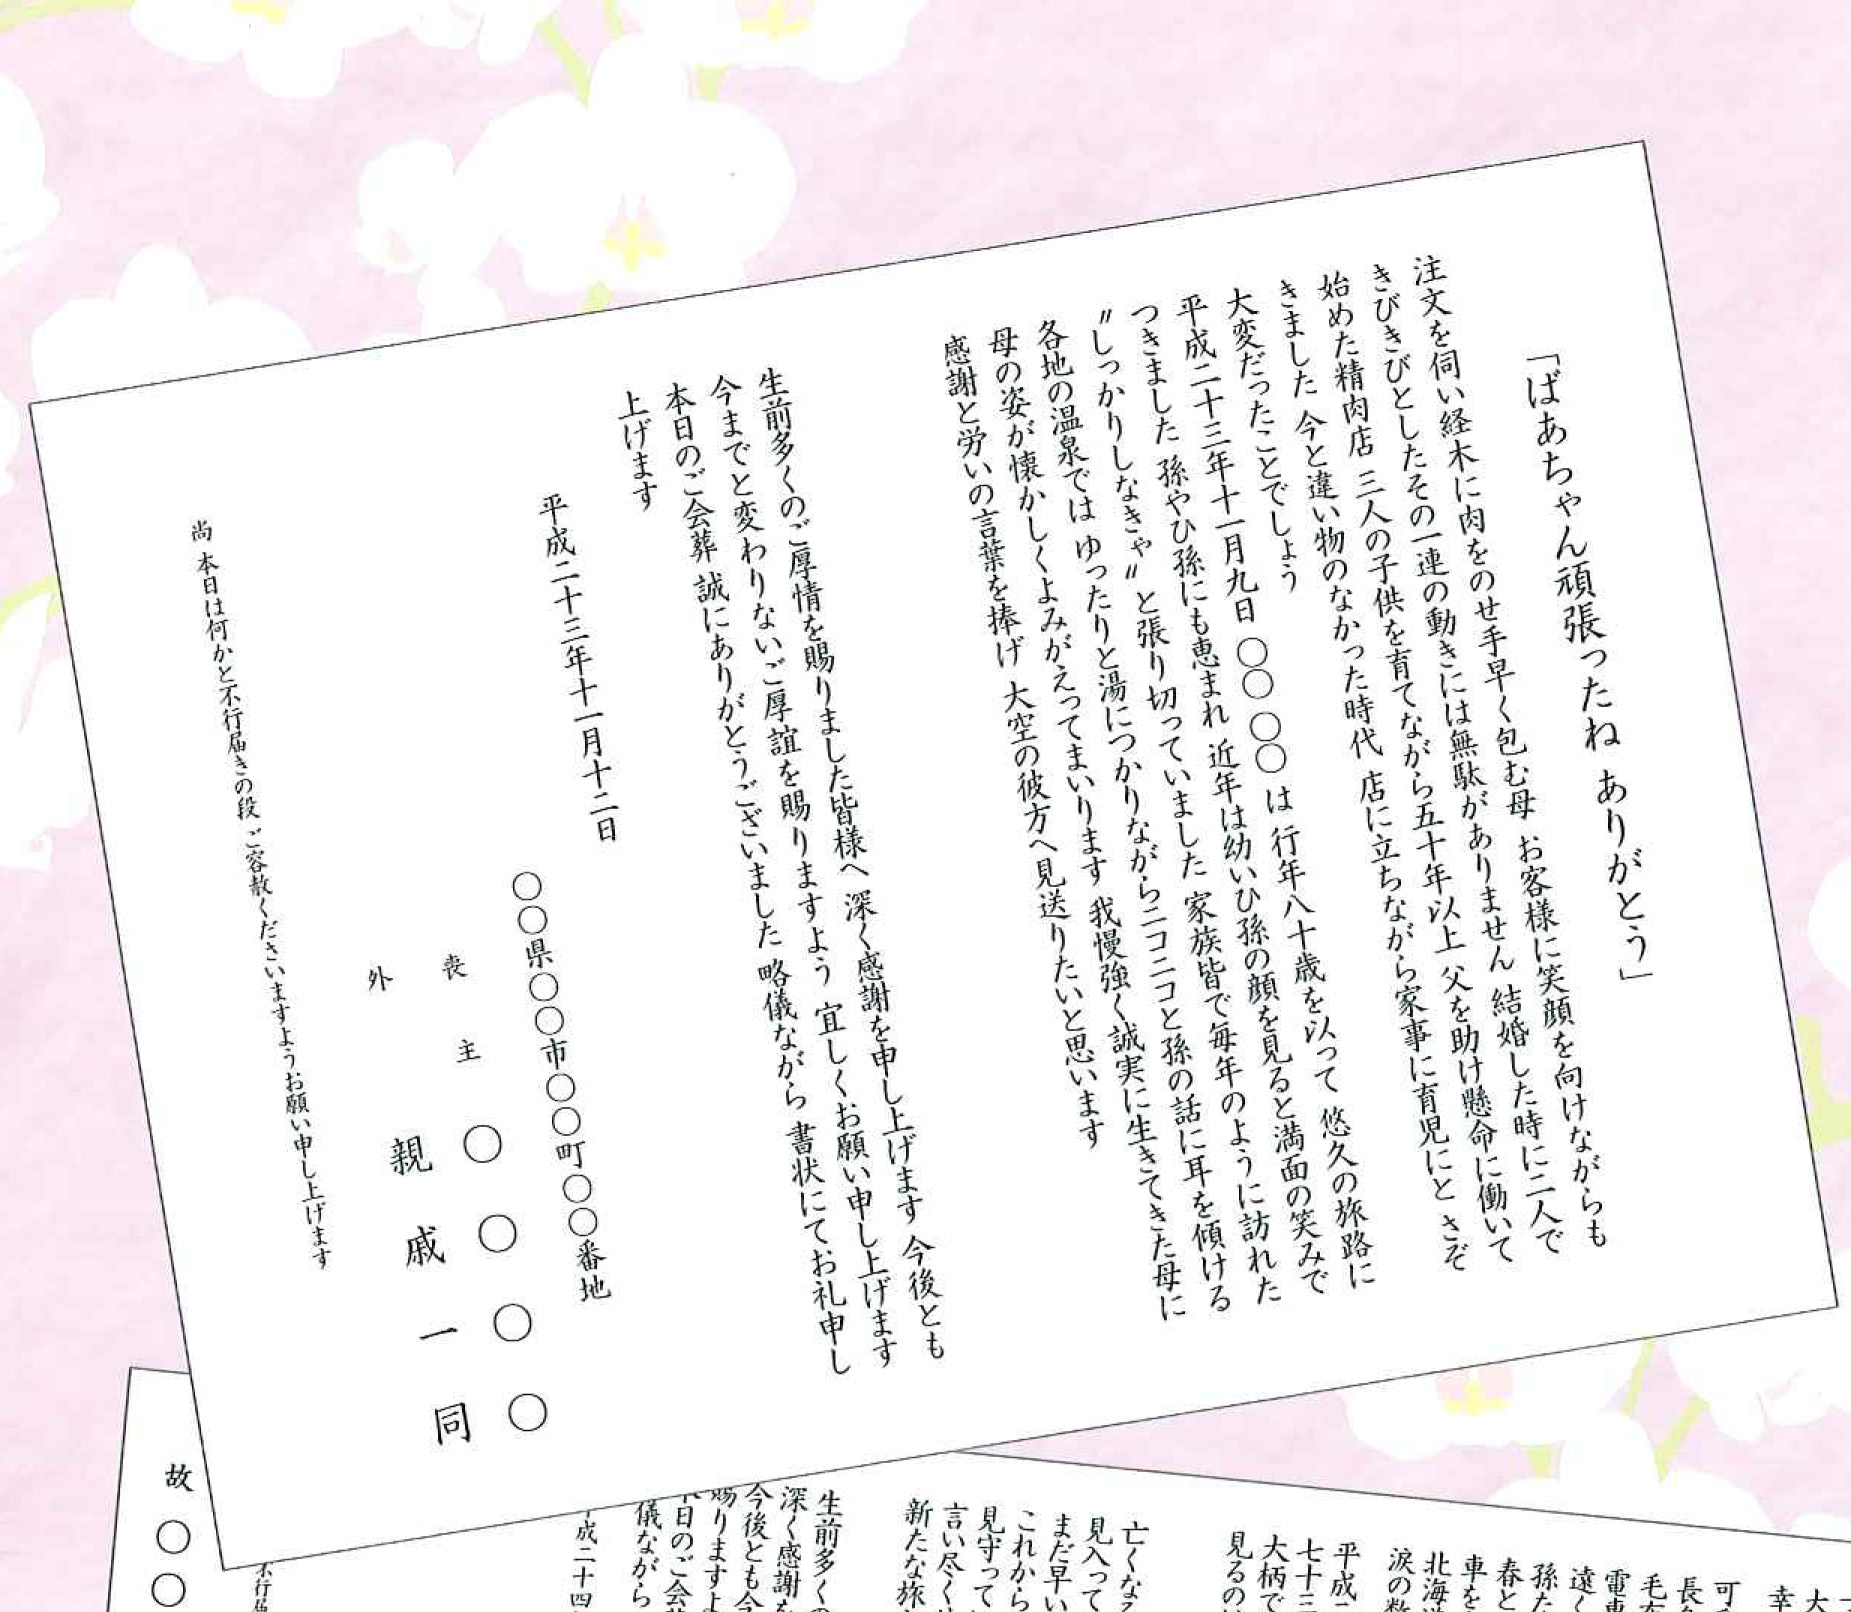 「ばあちゃん頑張ったね ありがとう」
注文を伺い経木に肉をのせ手早く包む母 お客様に笑顔を向けながらも
きびきびとしたその一連の動きには無駄がありません 結婚した時に二人で
始めた精肉店 三人の子供を育てながら五十年以上 父を助け懸命に働いて
きました 今と違い物のなかった時代 店に立ちながら家事に育児にと さぞ
大変だったことでしょう
平成二十三年十一月九日 〇〇 〇〇 は 行年八十歳を以って 悠久の旅路に
つきました 孫やひ孫にも恵まれ 近年は幼いひ孫の顔を見ると満面の笑みで
〃しっかりしなきゃ〃と張り切っていました 家族皆で毎年のように訪れた
各地の温泉では ゆったりと湯につかりながらニコニコと孫の話に耳を傾ける
母の姿が懐かしくよみがえってまいります 我慢強く誠実に生きてきた母に
感謝と労いの言葉を捧げ 大空の彼方へ見送りたいと思います
生前多くのご厚情を賜りました皆様へ 深く感謝を申し上げます 今後とも
今までと変わりないご厚誼を賜りますよう 宜しくお願い申し上げます
本日のご会葬 誠にありがとうございました 略儀ながら 書状にてお礼申し
上げます
平成二十三年十一月十二日
〇〇県〇〇市〇〇町〇〇番地
喪主 〇〇〇〇
外 親戚一同
尚 本日は何かと不行届きの段 ご容赦くださいますようお願い申し上げます
大
幸
可
長
毛
電車
遠く
孫た
春と
車を
北海道
涙の数
平成二
七十三
大柄で
見るの
亡くなる
見入って
まだ早い
これから
見守って
言い尽く
新たな旅
生前多くの
深く感謝を
今後とも今
賜りますよ
本日のご会
儀ながら
平成二十四
不行届
故 〇〇